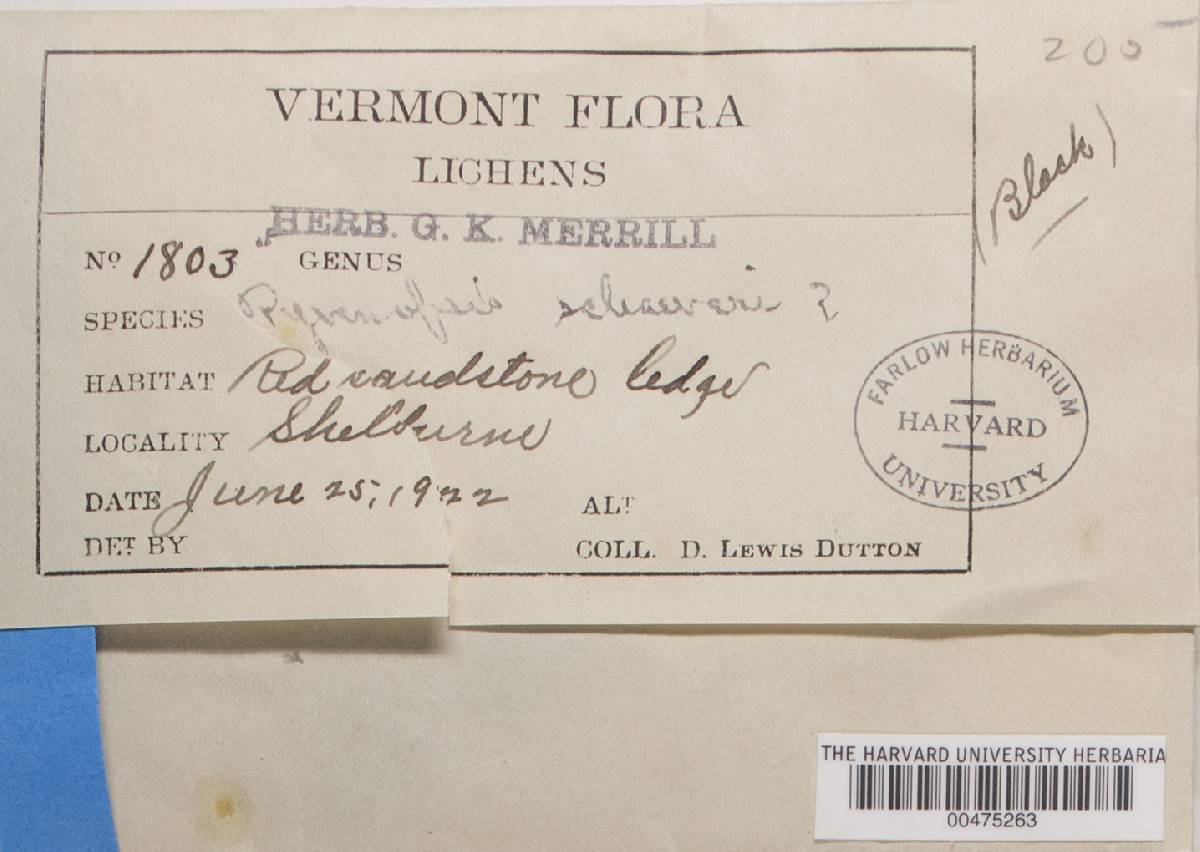 200
(Black)
VERMONT FLORA
LICHENS
HERB. G. K. MERRILL
Nº 1803 GENUS
SPECIES Pyrenopsis schaereri ?
HABITAT Red sandstone ledge
LOCALITY Shelburne
DATE June 25, 1922 ALT
DET BY COLL. D. LEWIS DUTTON
FARLOW HERBARIUM
HARVARD
UNIVERSITY
THE HARVARD UNIVERSITY HERBARIA
00475263